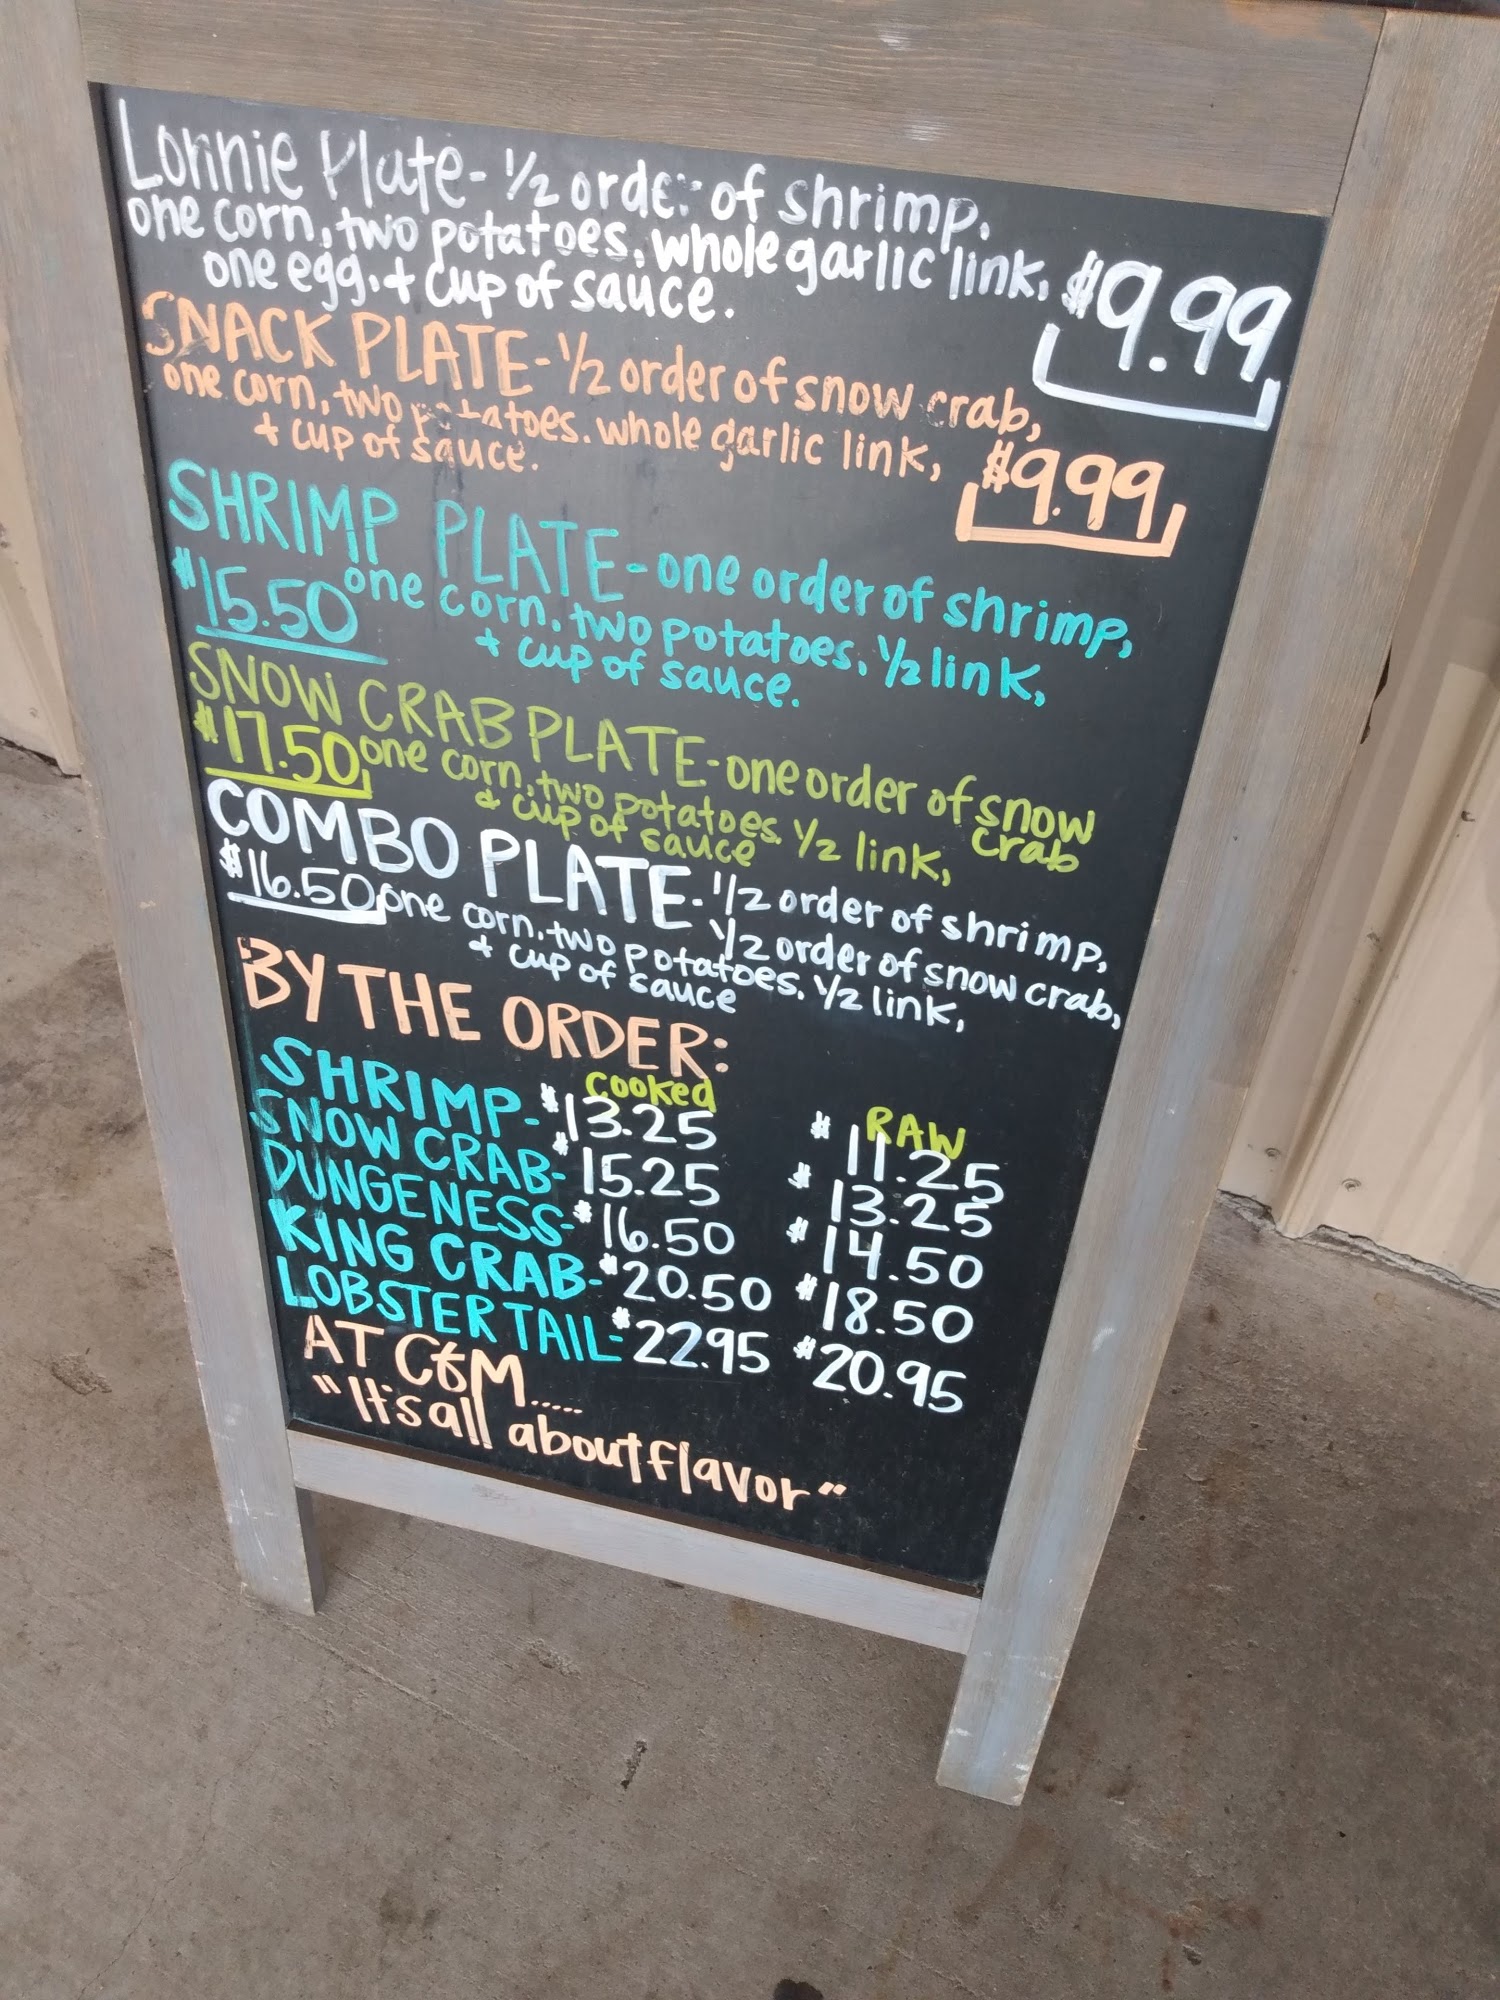 Lonnie Plate - 1/2 order of shrimp,
one corn, two potatoes, whole garlic link, $9.99
one egg, + cup of sauce.
SNACK PLATE - 1/2 order of snow crab,
one corn, two potatoes. whole garlic link, $9.99
+ cup of sauce.
SHRIMP PLATE - one order of shrimp,
$15.50 one corn, two potatoes, 1/2 link,
+ cup of sauce.
SNOW CRAB PLATE - one order of snow crab
$17.50 one corn, two potatoes. 1/2 link,
& cup of sauce
COMBO PLATE - 1/2 order of shrimp,
1/2 order of snow crab,
$16.50 one corn, two potatoes. 1/2 link,
+ cup of sauce
BY THE ORDER:
cooked RAW
SHRIMP - $13.25 $11.25
SNOW CRAB - $15.25 $13.25
DUNGENESS - $16.50 $14.50
KING CRAB - $20.50 $18.50
LOBSTER TAIL - $22.95 $20.95
AT C&M.....
"It's all about flavor"